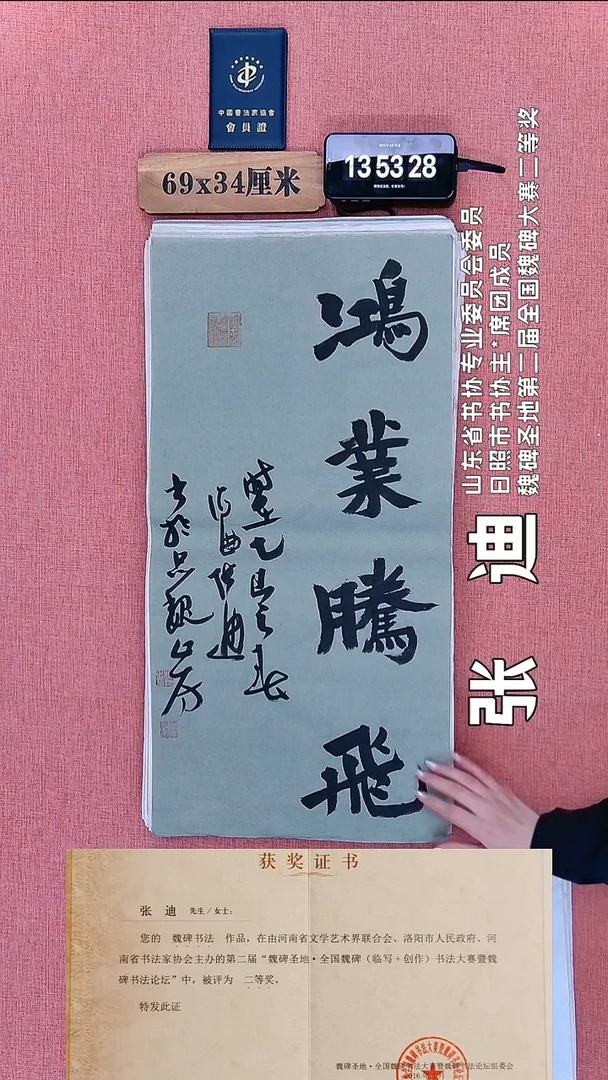 中國書法家協會
會員證
69x34厘米
13 53 28
山东省书协专业委员会委员
日照市书协主*席团成员
魏碑圣地第二届全国魏碑大赛二等奖
张 迪
鴻業騰飛
获奖证书
张 迪 先生/女士:
您的 魏碑书法 作品,在由河南省文学艺术界联合会、洛阳市人民政府、河
南省书法家协会主办的第二届“魏碑圣地·全国魏碑(临写+创作)书法大赛暨魏
碑书法论坛”中,被评为 二等奖。
特发此证
魏碑圣地·全国魏碑书法大赛暨魏碑书法论坛组委会